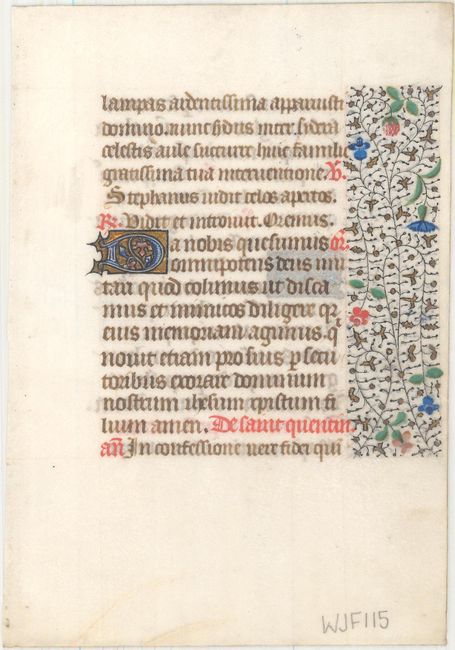 lampas ardentissima apparuisti
domino. nunc
celestis aule succurre huic familie
gratissima tua interventione. V.
Stephanus vidit celos apertos.
R. Vidit et introivit. Oremus.
Da nobis quesumus or.
omnipotens deus imi
tari quod colimus ut disca
mus et inimicos diligere qr
eius memoriam agimus. q
novit etiam pro suis psecu
toribus exorare dominum
nostrum ihesum cpistum fi
lium amen. De saint quentin
añ In confessione vere fidei qui
WJF115